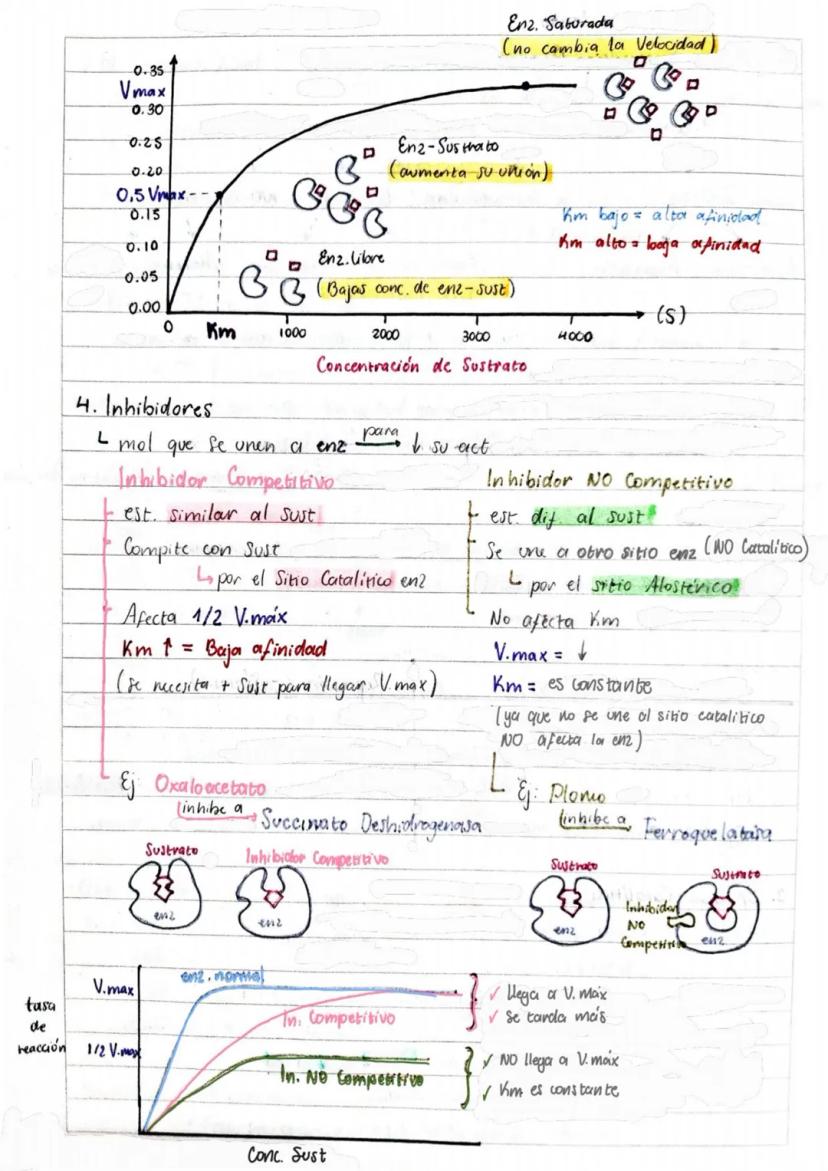 Enz. Saturada
(no cambia la Velocidad)
0.35
Vmax
0.30
0.25
Enz-Sustrato
0.20
(aumenta su unión)
0.5 Vmax
0.15
Km bajo = alta afinidad
0.10
Km alto = baja afinidad
Enz. Libre
0.05
(Bajas conc. de enz-sust)
0.00
(S)
0 Km 1000 2000 3000 4000
Concentración de Sustrato
4. Inhibidores
mol que se unen a enz para → ↓ su act
Inhibidor Competitivo
est. similar al sust
Compite con sust
por el Sitio Catalítico enz
Afecta 1/2 V.máx
Km ↑ = Baja afinidad
(se necesita + sust para llegar V.max)
Ej Oxaloacetato
inhibe a → Succinato Deshidrogenasa
Sustrato
enz
Inhibidor Competitivo
enz
Inhibidor NO Competitivo
est. dif. al sust
Se une a otro sitio enz (NO Catalítico)
por el sitio Alostérico
No afecta Km
V.max = ↓
Km = es constante
(ya que no se une al sitio catalítico
NO afecta la enz)
Ej: Plomo
inhibe a → Ferroquelatasa
Sustrato
enz
Sustrato
Inhibidor
NO
Competitivo
enz
tasa
de
reacción
V.max
1/2 V.max
enz. normal
In. Competitivo
In. NO Competitivo
✓ llega a V. Máx
✓ se tarda más
✓ NO llega a V. máx
✓ Km es constante
Conc. Sust